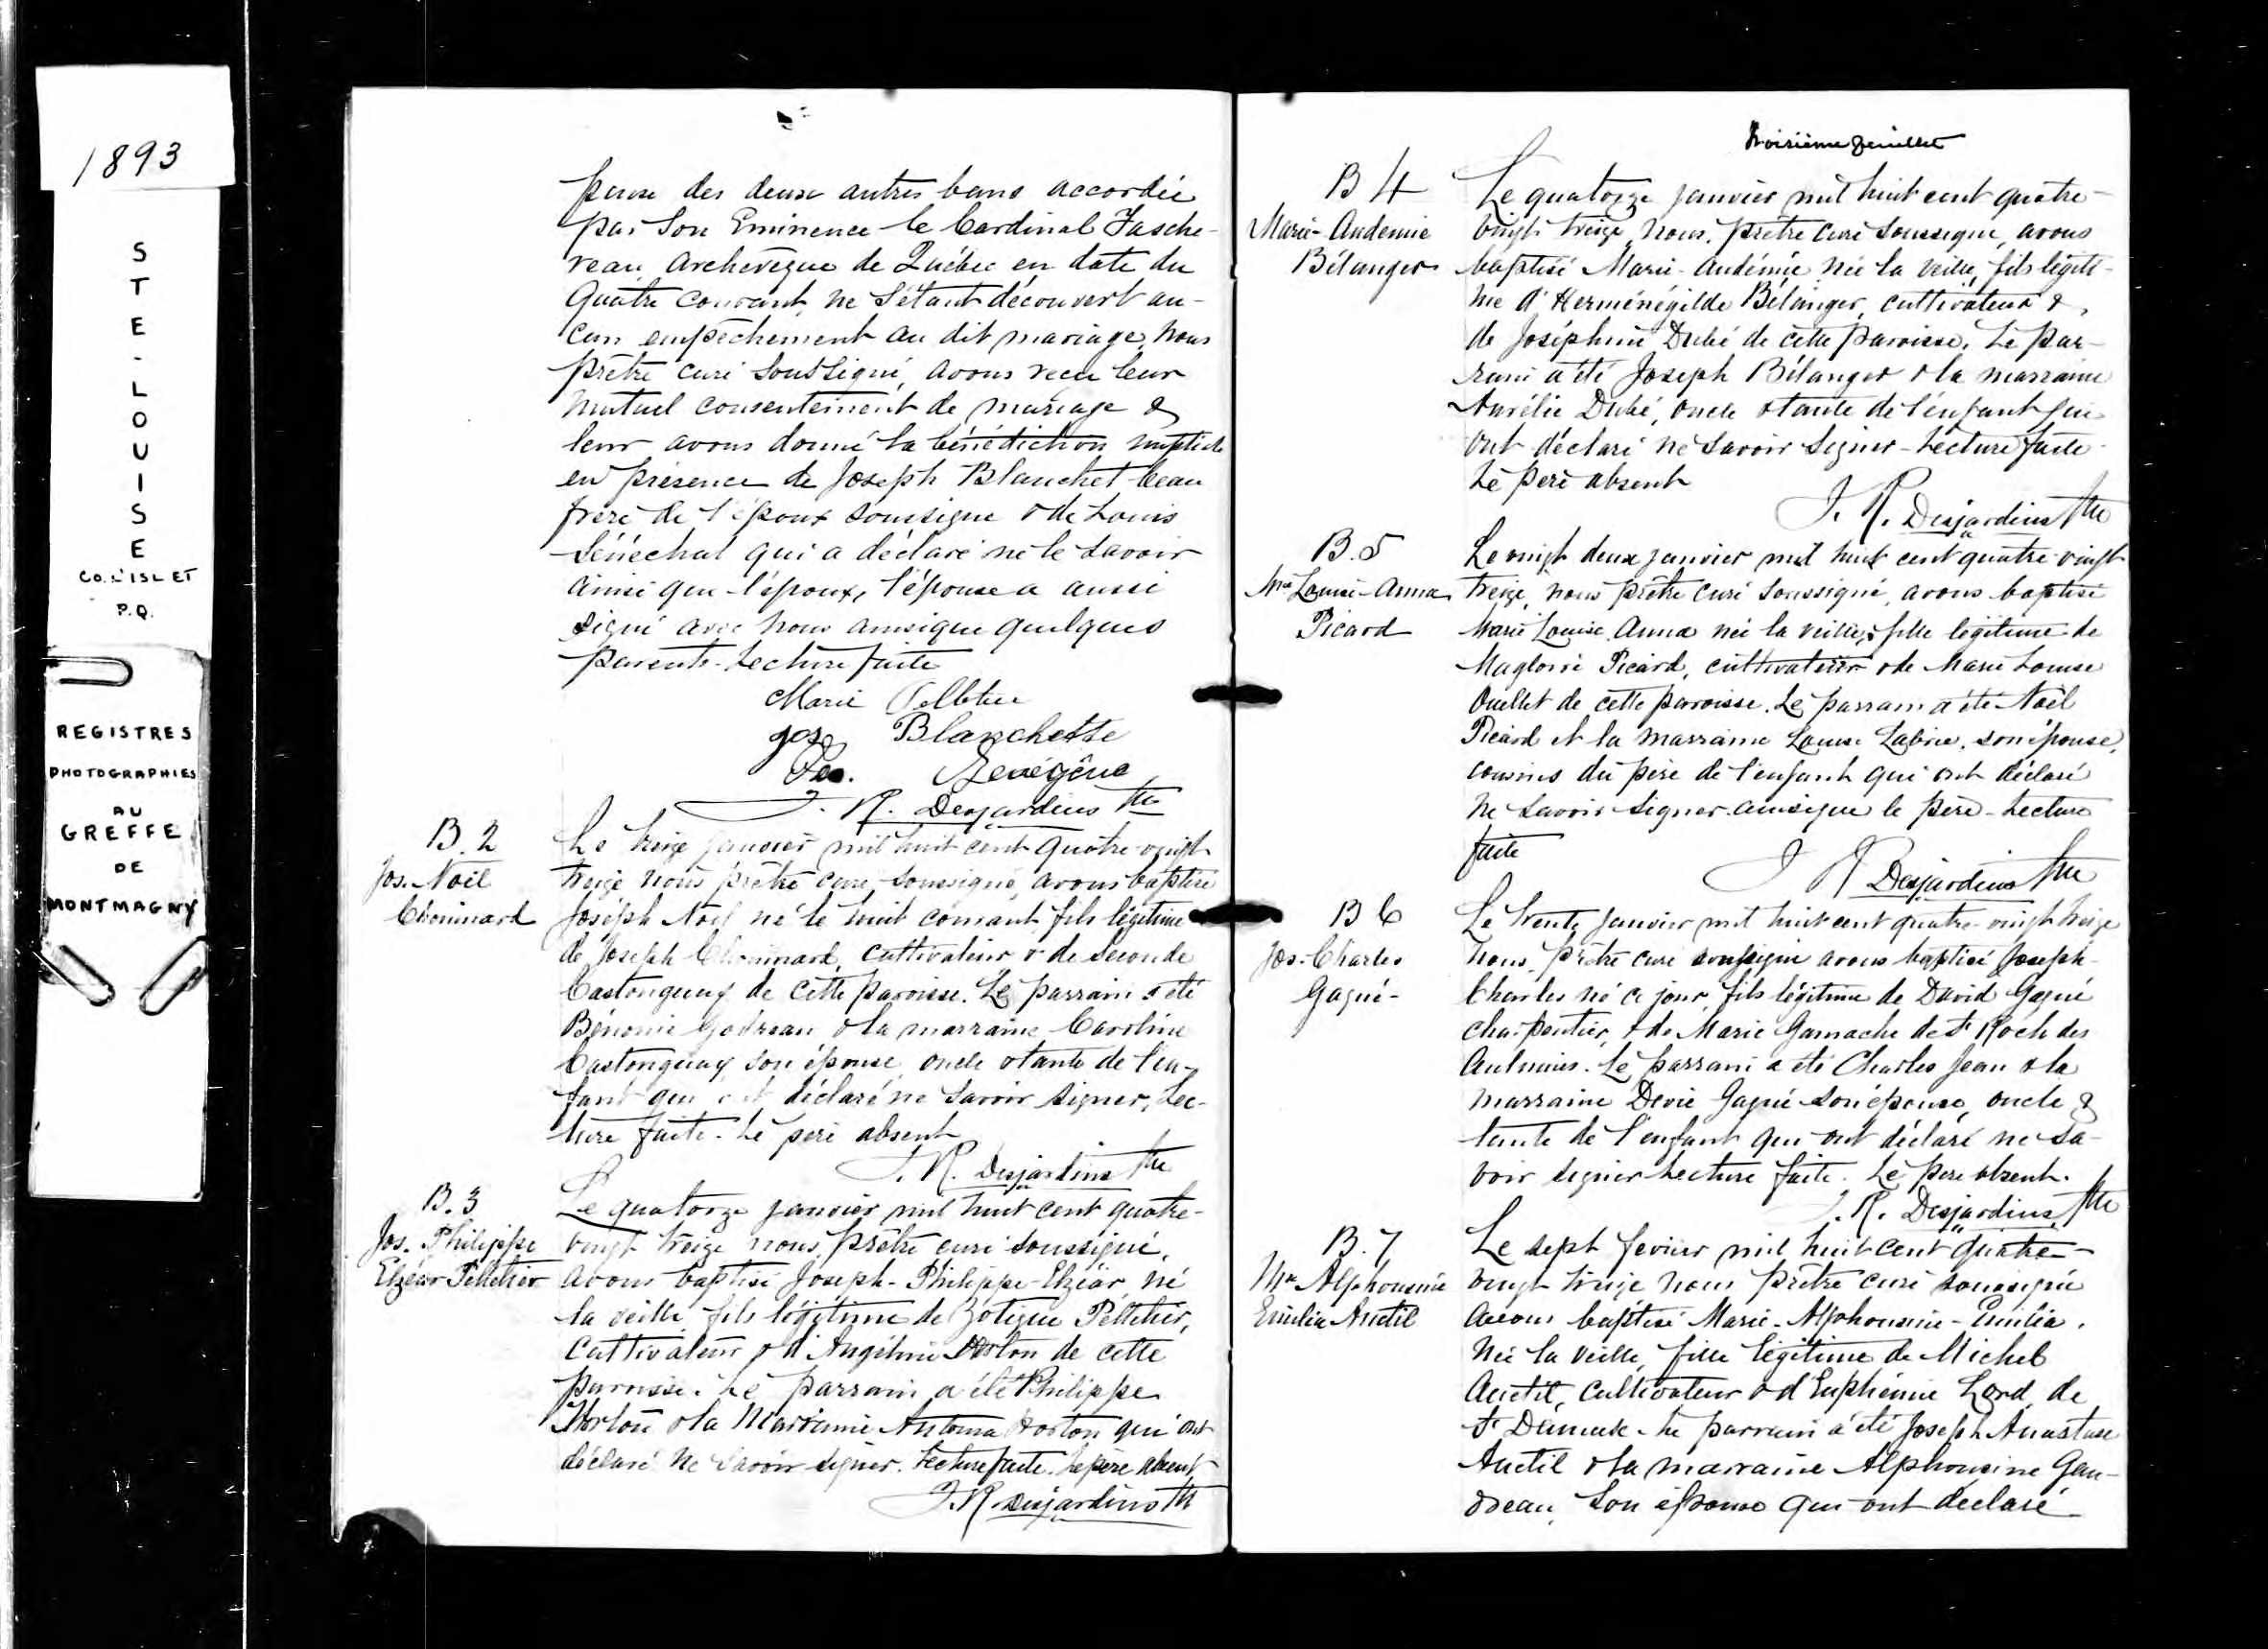 1893
STE-LOUISE
CO. L'ISLET
P.Q.
REGISTRES
PHOTOGRAPHIES
AU
GREFFE
DE
MONTMAGNY
pense des deux autres bans accordée
par Son Eminence le Cardinal Tasche-
reau Archevêque de Québec en date du
quatre courant, ne s'étant découvert au-
cun empêchement au dit mariage, nous
prêtre curé soussigné, avons recu leur
mutuel consentement de mariage &
leur avons donné la bénédiction nuptiale
en présence de Joseph Blanchet beau
frère de l'époux soussigné & de Louis
Sénéchal qui a déclaré ne le savoir
ainsi que l'époux, l'épouse a aussi
signé avec nous ainsique quelques
parents. Lecture faite
Marie Pelletier
Jos Blanchette
J. R. Desjardins Ptre
B. 2
Jos. Noël
Chouinard
Le treize janvier mil huit cent quatre-vingt
treize nous prêtre curé soussigné, avons baptisé
Joséph Noël né le huit courant fils légitime
de Joseph Chouinard, cultivateur & de Seconde
Castonguay de cette paroisse. Le parrain a été
Bénonie Godreau & la marraine Caroline
Castonguay son épouse, oncle & tante de l'en-
fant qui ont déclaré ne savoir signer, Lec-
ture faite. Le père absent
J. R. Desjardins Ptre
B. 3
Jos. Philippe
Elzéar Pelletier
Le quatorze janvier mil huit cent quatre-
vingt treize nous, prêtre curé soussigné,
avons baptisé Joseph-Philippe-Elzéar, né
la veille fils légitime de Zotique Pelletier,
cultivateur & d'Angéline Norton de cette
paroisse. Le parrain a été Philippe
Norton & la Marraine Antonia Norton qui ont
déclaré ne savoir signer. Lecture faite. Le père absent
J. R Desjardins Ptre
Troisième feuillet
B 4
Marie-Andemie
Bélanger
Le quatorze janvier mil huit cent quatre-
vingt treize, nous, prêtre curé soussigné, avons
baptisé Marie-Andémie née la veille, fils légiti-
me d'Herménégilde Bélanger, cultivateur &
de Joséphine Dubé de cette paroisse. Le par-
rain a été Joseph Bélanger & la marraine
Aurélie Dubé, oncle & tante de l'enfant qui
ont déclaré ne savoir signer - Lecture faite
Le père absent
J. R. Desjardins Ptre
B. 5
Mie Louise-Anna
Picard
Le vingt deux janvier mil huit cent quatre-vingt
treize, nous prêtre curé soussigné, avons baptisé
Marie Louise Anna née la veille, fille légitime de
Magloire Picard, cultivateur & de Marie Louise
Ouellet de cette paroisse. Le parrain a été Noël
Picard et la marraine Louise Labrie, son épouse,
cousins du père de l'enfant qui ont déclaré
ne savoir signer ainsique le père - Lecture
faite
J R Desjardins Ptre
B 6
Jos-Charles
Gagné-
Le trente janvier mil huit cent quatre-vingt treize
nous, prêtre curé soussigné avons baptisé Joseph-
Charles né ce jour, fils légitime de David Gagné
charpentier, & de Marie Gamache de St Roch des
Aulnaies. Le parrain a été Charles Jean & la
marraine Devie Gagné son épouse, oncle &
tante de l'enfant qui ont déclaré ne sa-
voir signer Lecture faite. Le père absent.
J. R. Desjardins, Ptre
B. 7
Mie Alphonsine
Emilia Anctil
Le sept fevrier mil huit cent quatre-
vingt treize nous prêtre curé soussigné
avons baptisé Marie-Alphonsine-Emilia,
née la veille, fille légitime de Michel
Anctil, cultivateur & d'Euphémie Lord, de
St Damase. Le parrain a été Joseph Anastase
Anctil & la marraine Alphonsine Gau-
dreau, son épouse qui ont declaré